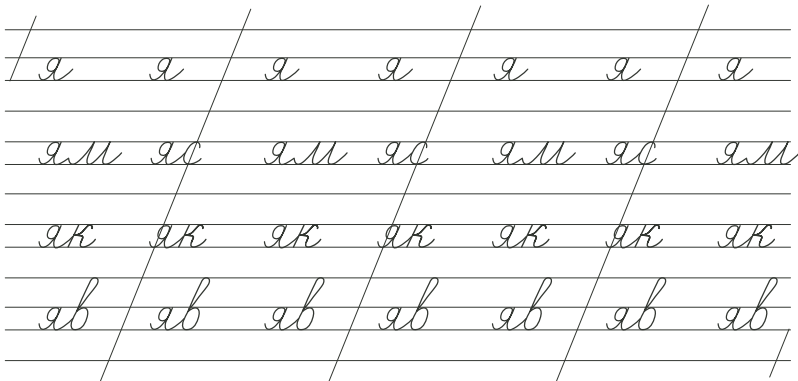 я я я я я я я
ям яс ям яс ям яс ям
як як як як як як як
яв яв яв яв яв яв яв